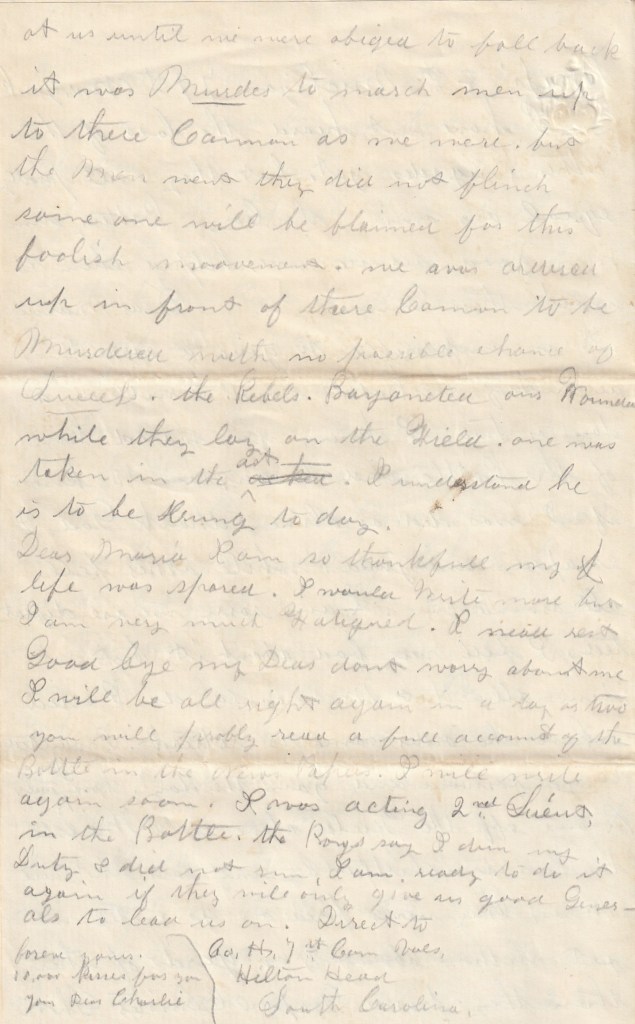 at us until we were abiged to fall back
it was Murder to march men up
to there Cannon as we were. but
the Men went they did not flinch
some one will be blaimed for this
foolish moovement. we was
up in front of there Cannon to be
Murdered with no possible chance of
Sucess. the Rebels. Bayoneted our Wounded
while they lay on the Field. one was
taken in the act. I understand he
is to be Hung to day.
Dear Maria I am so thankfull my
life was spared. I would write more but
I am very much Fatigued. I nead rest
Good bye my Dear dont worry about me
I will be all right again in a day or two
you will probly read a full account of the
Battle in the News Papers. I will write
again soon. I was acting 2nd Lieut.
in the Battle. the Boys say I dun my
Duty I did not run, I am ready to do it
again if they will only give us good Gener-
als to lead us on. Direct to
Co, H, 7th Conn Vols,
Hilton Head
South Carolina,
forever yours.
10,000 Kisses for you
your Dear Charlie